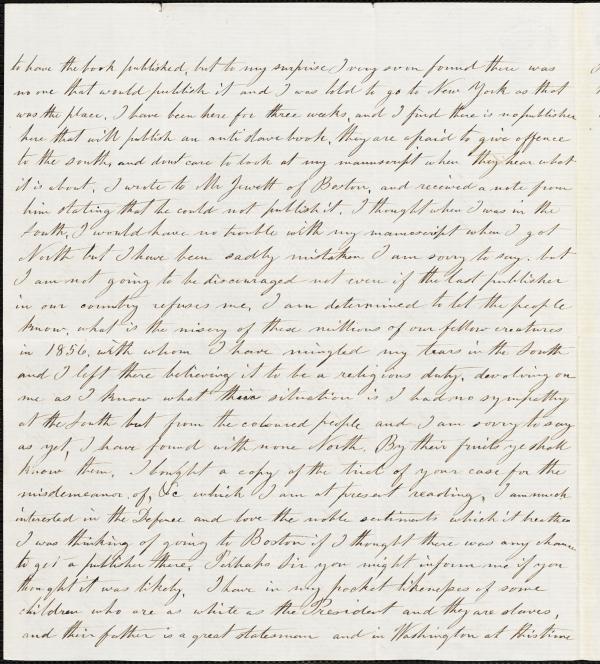 to have the book published, but to my surprise I very soon found there was
no one that would publish it and I was told to go to New York as that
was the place. I have been here for three weeks, and I find there is no publisher
here that will publish an anti slave book, they are afraid to give offence
to the south, and dont care to look at my manuscript when they hear what
it is about. I wrote to Mr Jewett of Boston, and received a note from
him stating that he could not publish it. I thought when I was in the
South, I would have no trouble with my manuscript when I got
North but I have been sadly mistaken I am sorry to say. but
I am not going to be discouraged not even if the last publisher
in our country refuses me, I am determined to let the people
know, what is the misery of these millions of our fellow creatures
in 1856, with whom I have mingled my tears in the South
and I left there believing it to be a religious duty, devolving on
me as I know what their situation is I had no sympathy
at the South but from the coloured people and I am sorry to say
as yet, I have found with none North. By their fruits ye shall
know them. I bought a copy of the trial of your case for the
misdemeanor, of, &c which I am at present reading, I am much
interested in the Defence and love the noble sentiments which it breathes
I was thinking of going to Boston if I thought there was any chance
to get a publisher there. Perhaps Sir you might inform me if you
thought it was likely. I have in my pocket likenesses of some
children who are as white as the President and they are slaves,
and their father is a great statesman and in Washington at this time